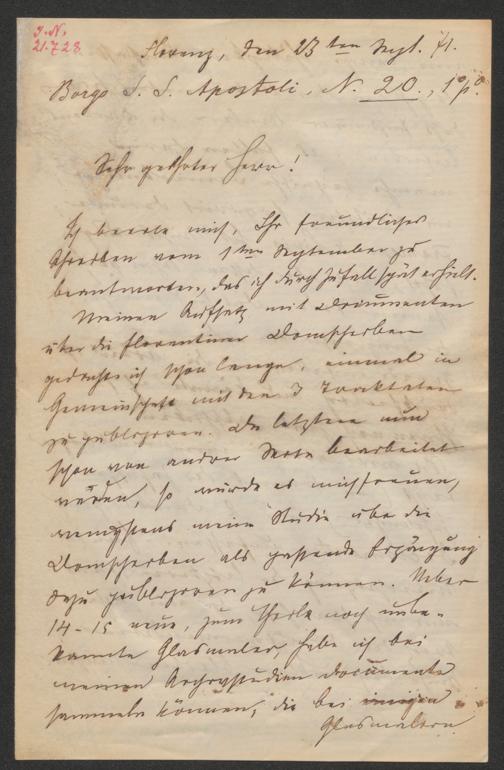 I. N.
21.728
Florenz, den 23ten Sept. 71.
Borgo S. S. Apostoli, N. 20., 1º pº
Sehr geehrter Herr!
Ich beeile mich, Ihr freundliches
Schreiben vom 1ten September zu
beantworten, das ich durch Zufall spät erhielt.
Meinen Aufsatz mit Documenten
über die florentiner Domscherben
gedachte ich schon lange, einmal in
Gemeinschaft mit den 3 Tractaten
zu publiziren. Da letztere nun
schon von andrer Seite bearbeitet
wurden, so würde es mich freuen,
wenigstens meine Studie über die
Domscherben als passende Ergänzung
dazu publiziren zu können. Ueber
14-15 neue, zum Theile noch unbe-
kannte Glasmaler, habe ich bei
meinen Archivstudien Documente
sammeln können, die bei einigen
Glasmalern